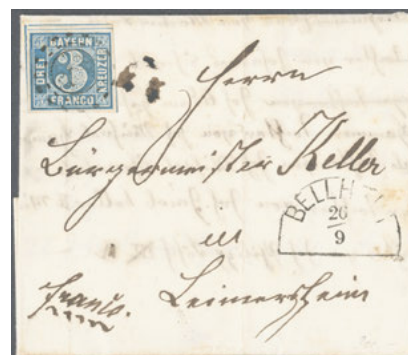 BAYERN
DREI 3 KREUZER
FRANCO
Herrn
Bürgermeister Keller
in
BELLH
26
9
franco.
Leimersheim